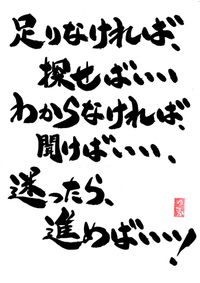 足りなければ、
探せばいい
わからなければ、
聞けばいい、
迷ったら、
進めばいいッ!